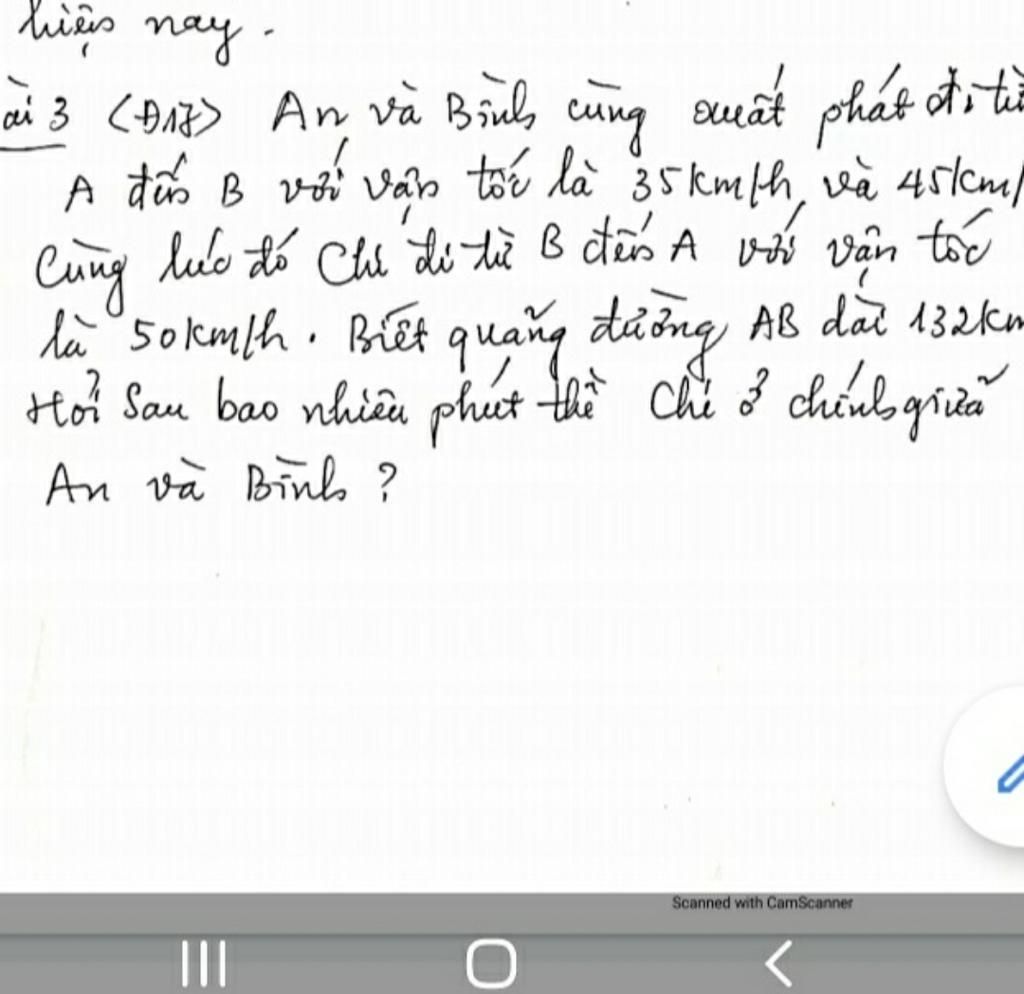 hiện nay.
ài 3 <Đ17> An và Bình cùng xuất phát đi từ
A đến B với vận tốc là 35km/h và 45km/
Cùng lúc đó Chi đi từ B đến A với vận tốc
là 50km/h. Biết quãng đường AB dài 132km
Hỏi Sau bao nhiêu phút thì Chi ở chính giữa
An và Bình?
Scanned with CamScanner